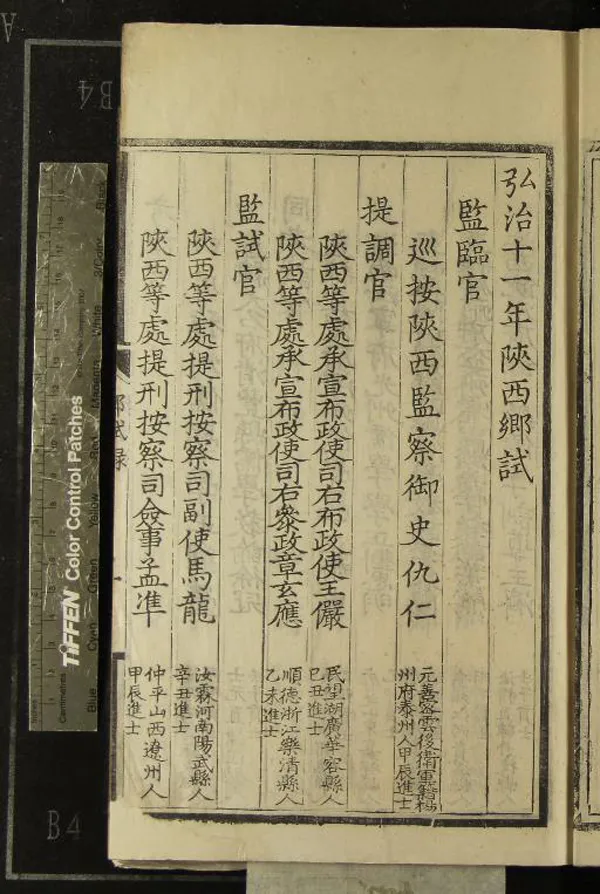 弘治十一年陝西鄉試
監臨官
巡按陝西監察御史仇仁 元善密雲後衛軍籍楊州府泰州人甲辰進士
提調官
陝西等處承宣布政使司右布政使王儼 民望湖廣華容縣人己丑進士
陝西等處承宣布政使司右叅政章玄應 順德浙江樂清縣人乙未進士
監試官
陝西等處提刑按察司副使馬龍 汝霖河南陽武縣人辛丑進士
陝西等處提刑按察司僉事孟準 仲平山西遼州人甲辰進士
試錄
TIFFEN Color Control Patches
Blue
Cyan
Green
Yellow
Red
Magenta
White
3/Color
Black
Inches
Centimetres
B4
B4
A